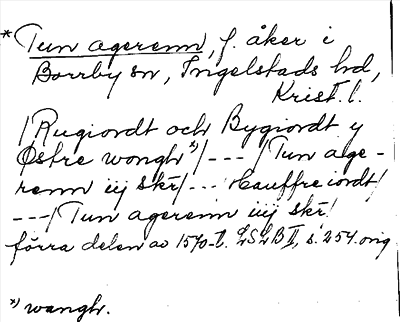 * Tun agerenn, f. åker i
Borrby sn, Ingelstads hd,
Krist. l.
/Rugiordt och Bygiordt y
Østre wongh *)/--- /Tun age-
renn iij skr/--- Hauffre iordt/
---/Tun agerenn iiij skr/
förra delen av 1570-t. LSLB II, s. 254. orig
*) wangh.